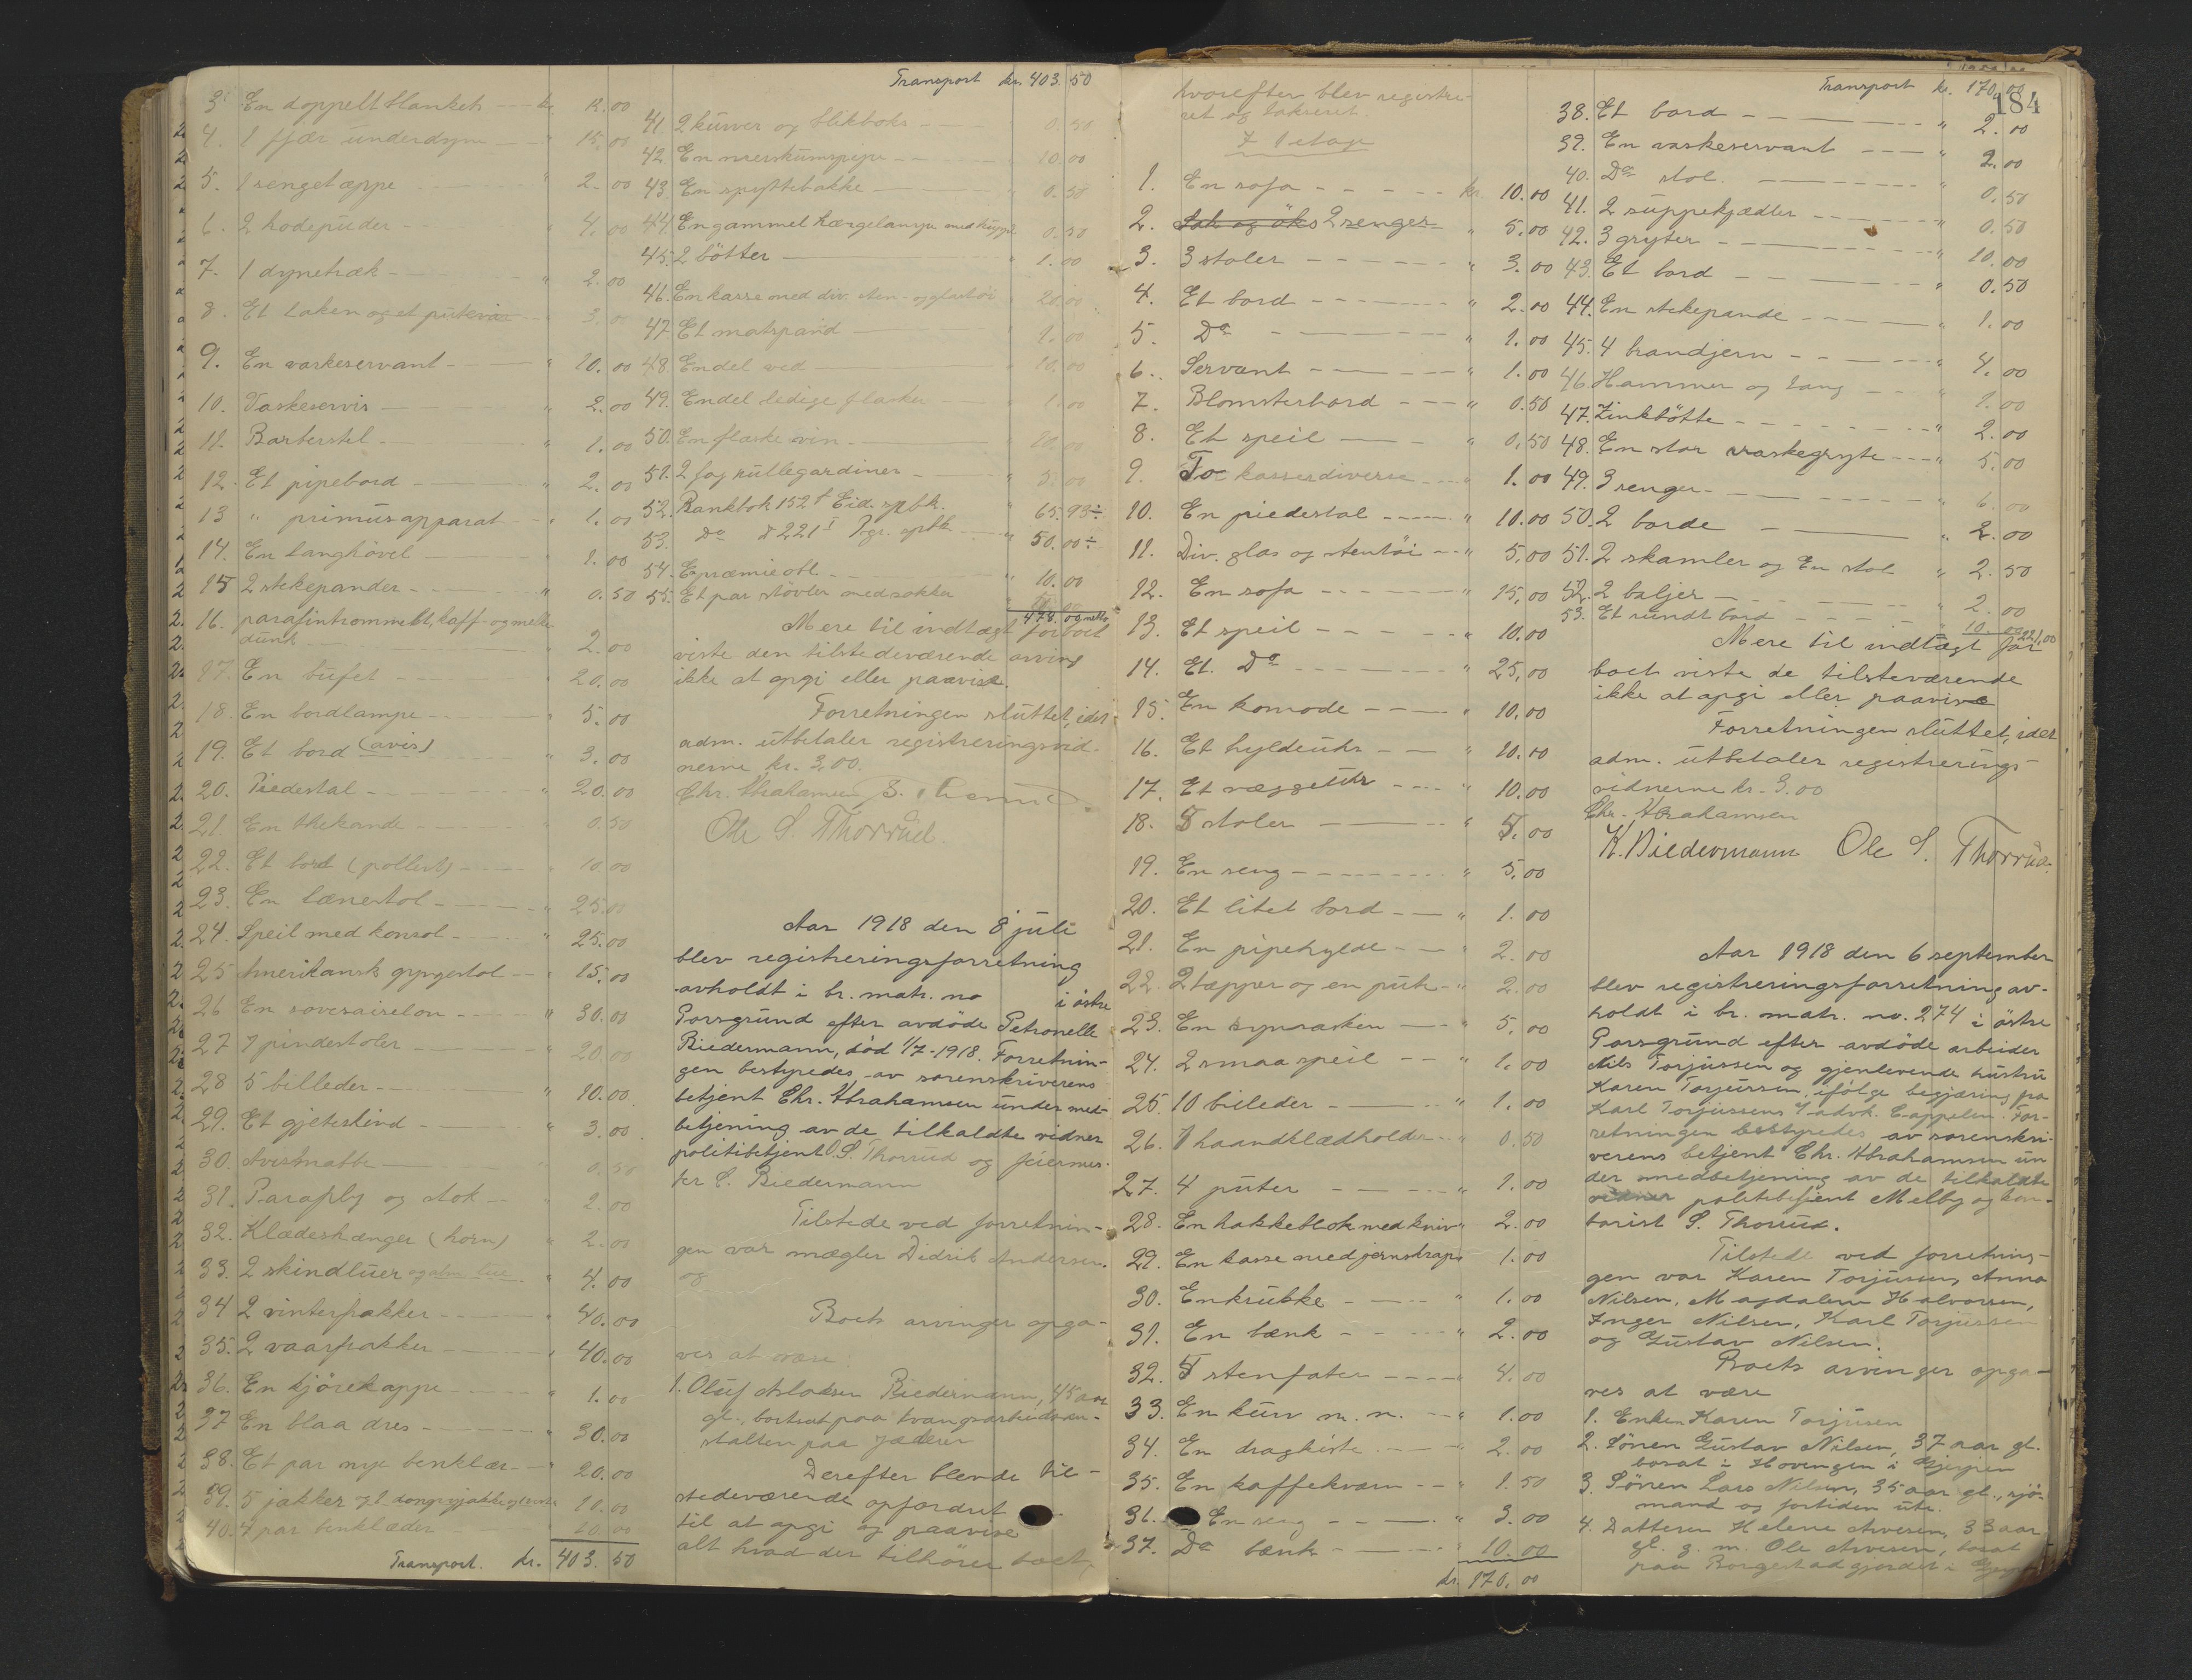 3. En doppelt blanket kr. 12.00
4. 1 fjær underdyne " 15.00
5. 1 sengetæppe " 2.00
6. 2 hodepuder " 4.00
7. 1 dynetræk " 2.00
8. Et laken og et putevar " 3.00
9. En vaskeservant " 10.00
10. Vaskeservis " 2.00
11. Barberstel " 1.00
12. Et pipebord " 2.00
13 " primusapparat " 1.00
14. En langhövel " 1.00
15 2 stekepander " 0.50
16. parafintrommelt, kaff- og melke
dunk " 2.00
17. En bufet " 20.00
18. En bordlampe " 5.00
19. Et bord (avis) " 3.00
20. Piedestal " 20.00
21. En thekande " 0.50
22. Et bord (pollert) " 10.00
23. En lænestol " 25.00
24. Speil med konsol " 25.00
25 Amerikansk gyngestol " 15.00
26 En sovesaiselon " 30.00
27 7 pindestoler " 20.00
28 5 billeder " 10.00
29. Et gjeteskind " 3.00
30. " 0.50
31. Paraply og stok " 2.00
32. Klædeshænger (horn) " 2.00
33. 2 skindluer " 4.00
34 2 vinterfrakker " 40.00
35. 2 vaarfrakker " 40.00
36. En kjörekappe " 1.00
37 En blaa dres " 30.00
38. Et par nye benklær " 20.00
39. 5 jakker 10.00
40. 4 par benklæder 10.00
Transport. kr. 403.50
Transport kr. 403.50
41. 2 kurver og blikboks 0.50
42. En merskumspipe 10.00
43. En spyttebakke 0.50
44. En gammel hængelampe med kuppel 0.50
45. 2 bötter 1.00
46. En kasse med div. sten- og glastöi 20.00
47. Et matspand 1.00
48. Endel ved 10.00
49. Endel ledige flasker 1.00
50. En flaske vin
51. 2 fag rullegardiner 3.00
52. Bankbok 152 Eid. spbk. " 65.93÷
53. Do 221 Pgr. spbk " 50.00÷
54. præmieobl. " 10.00
55. Et par støvler med sokker
478.00 netto
Mere til indtægt for boet
viste den tilstedeværende arving
ikke at opgi eller paavise.
Forretningen sluttet, idet
adm. utbetaler registreringsvid-
nerne kr. 3,00.
Chr. Abrahamsen
Ole S. Thorrud.
Aar 1918 den 8 juli
blev registreringsforretning
avholdt i br. matr. no i östre
Porsgrund efter avdöde Petronelle
Biedermann, död 1/7-1918. Forretnin-
gen bestyredes av sorenskriverens
betjent Chr. Abrahamsen under med-
betjening av de tilkaldte vidner
politibetjent O. S. Thorrud og feiermes-
ter C. Biedermann
Tilstede ved forretnin-
gen var mægler Didrik Andersen.
og
Boets arvinger opga-
ves at være
1. Oluf Aslaksen Biedermann, 45 aar
gl., bortsat paa tvangsarbeidsan-
stalten paa Jæderen
Derefter blev de til-
stedeværende opfordret
til at opgi og paavise
alt hvad der tilhörer boet,
hvorefter blev registre-
ret og taksert.
I 1 etage
1. En sofa kr. 10.00
2. 2 senger " 5.00
3. 3 stoler " 3.00
4. Et bord " 2.00
5. Do " 1.00
6. Servant " 1.00
7. Blomsterbord " 0.50
8. Et speil " 0.50
9. To kasser diverse " 1.00
10. En piedestal " 10.00
11. Div. glas og stentöi " 5.00
12. En sofa " 15.00
13. Et speil " 10.00
14. Et. Do " 25.00
15. En komode " 10.00
16. Et hyldeuhr " 10.00
17. Et væggeuhr " 10.00
18. 5 stoler " 5.00
19. En seng " 5.00
20. Et litet bord " 1.00
21. En pipehylde " 2.00
22. 2 tæpper og en pute " 2.00
23. En symaskin " 5.00
24. 2 smaa speil " 1.00
25. 10 billeder " 1.00
26. 1 haandklædholder " 0.50
27. 4 puter " 1.00
28. En hakkeblok med kniv " 2.00
29. En kasse med jernskrap " 1.00
30. En krubke " 1.00
31. En bænk " 2.00
32. 5 stenfater " 4.00
33. En kurv m. m. " 1.00
34. En dragkiste " 2.00
35. En kaffekværn " 1.50
36. En seng " 3.00
37. Do bænk " 10.00
kr. 170.00
184
Transport kr. 170.00
38. Et bord " 2.00
39. En vaskeservant " 2.00
40. Do stol. " 0.50
41. 2 suppekjædler " 0.50
42. 3 gryter " 10.00
43. Et bord " 0.50
44. En stekepande " 1.00
45. 4 brandjern " 4.00
46. Hammer og tang " 1.00
47. Zinkbötte " 2.00
48. En stor vaskegryte " 5.00
49. 3 senger " 6.00
50. 2 borde " 2.00
51. 2 skamler og En stol " 2.50
52. 2 baljer " 2.00
53. Et rundt bord " 10.00
221.00
Mere til indtægt for
boet viste de tilsteværende
ikke at opgi eller paavise
Forretningen sluttet, idet
adm. utbetaler registrerings-
vidnerne kr. 3.00
Chr. Abrahamsen
K. Biedermann Ole S. Thorrud.
Aar 1918 den 6 september
blev registreringsforretning av-
holdt i br. matr. no. 274 i östre
Porsgrund efter avdöde arbeider
Nils Torjussen og gjenlevende hustru
Karen Torjussen, ifölge begjæring fra
Karl Torjussens advok. Cappelen. For-
retningen bestyredes av sorenskri-
verens betjent Chr. Abrahamsen un
der medbetjening av de tilkaldte
vidner politibetjent Melby og kon-
torist S. Thorrud.
Tilstede ved forretnin-
gen var Karen Torjussen, Anna
Nilsen, Magdalene Halvorsen,
Inger Nilsen, Karl Torjussen
og Gustav Nilsen.
Boets arvinger opga-
ves at være
1. Enken Karen Torjusen
2. Sönen Gustav Nilsen, 37 aar gl.
bosat i Hovengen i Gjerpen
3. Sönen Lars Nilsen, 35 aar gl., sjö-
mand og fortiden ute.
4. Datteren Helene Arvesen, 33 aar
gl. g. m. Ole Arvesen, bosat
paa Borgestadgjordet i Gjerpen